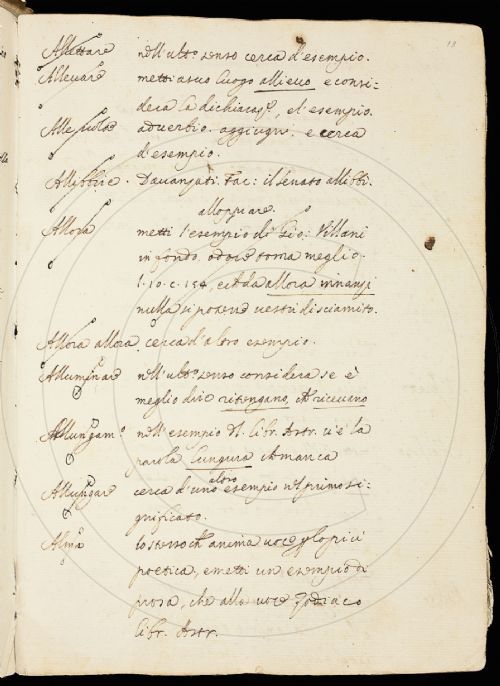 18
Allettare nell'ulto senso cerca d'esempio.
Allevare metti a suo luogo allievo e consi:
dera la dichiaraze, el'esempio.
adverbio. aggiugni. e cerca
d'esempio.
Allibbire. Davanzati. Tac: il senato allibbì.
alloppiare.
Allora metti l'esempio di Gio: Villani
in fondo, dove torna meglio.
l. 10. c. 154, da allora innanzi
nulla si potesse vestir di sciamito.
Allora allora cerca d'altro esempio.
Alluminare nell'ulto senso considera se è
meglio dire ritengano, ch ricevano
Allungamo nell'esempio d. libr. Astr. v'è la
parola lungura ch manca
altro
Allungare cerca d'uno esempio nel primo si:
gnificato.
Alma lo stesso ch anima voce più
poetica, e metti un esempio di
prosa, che alla voce Zodiaco
libr. Astr.